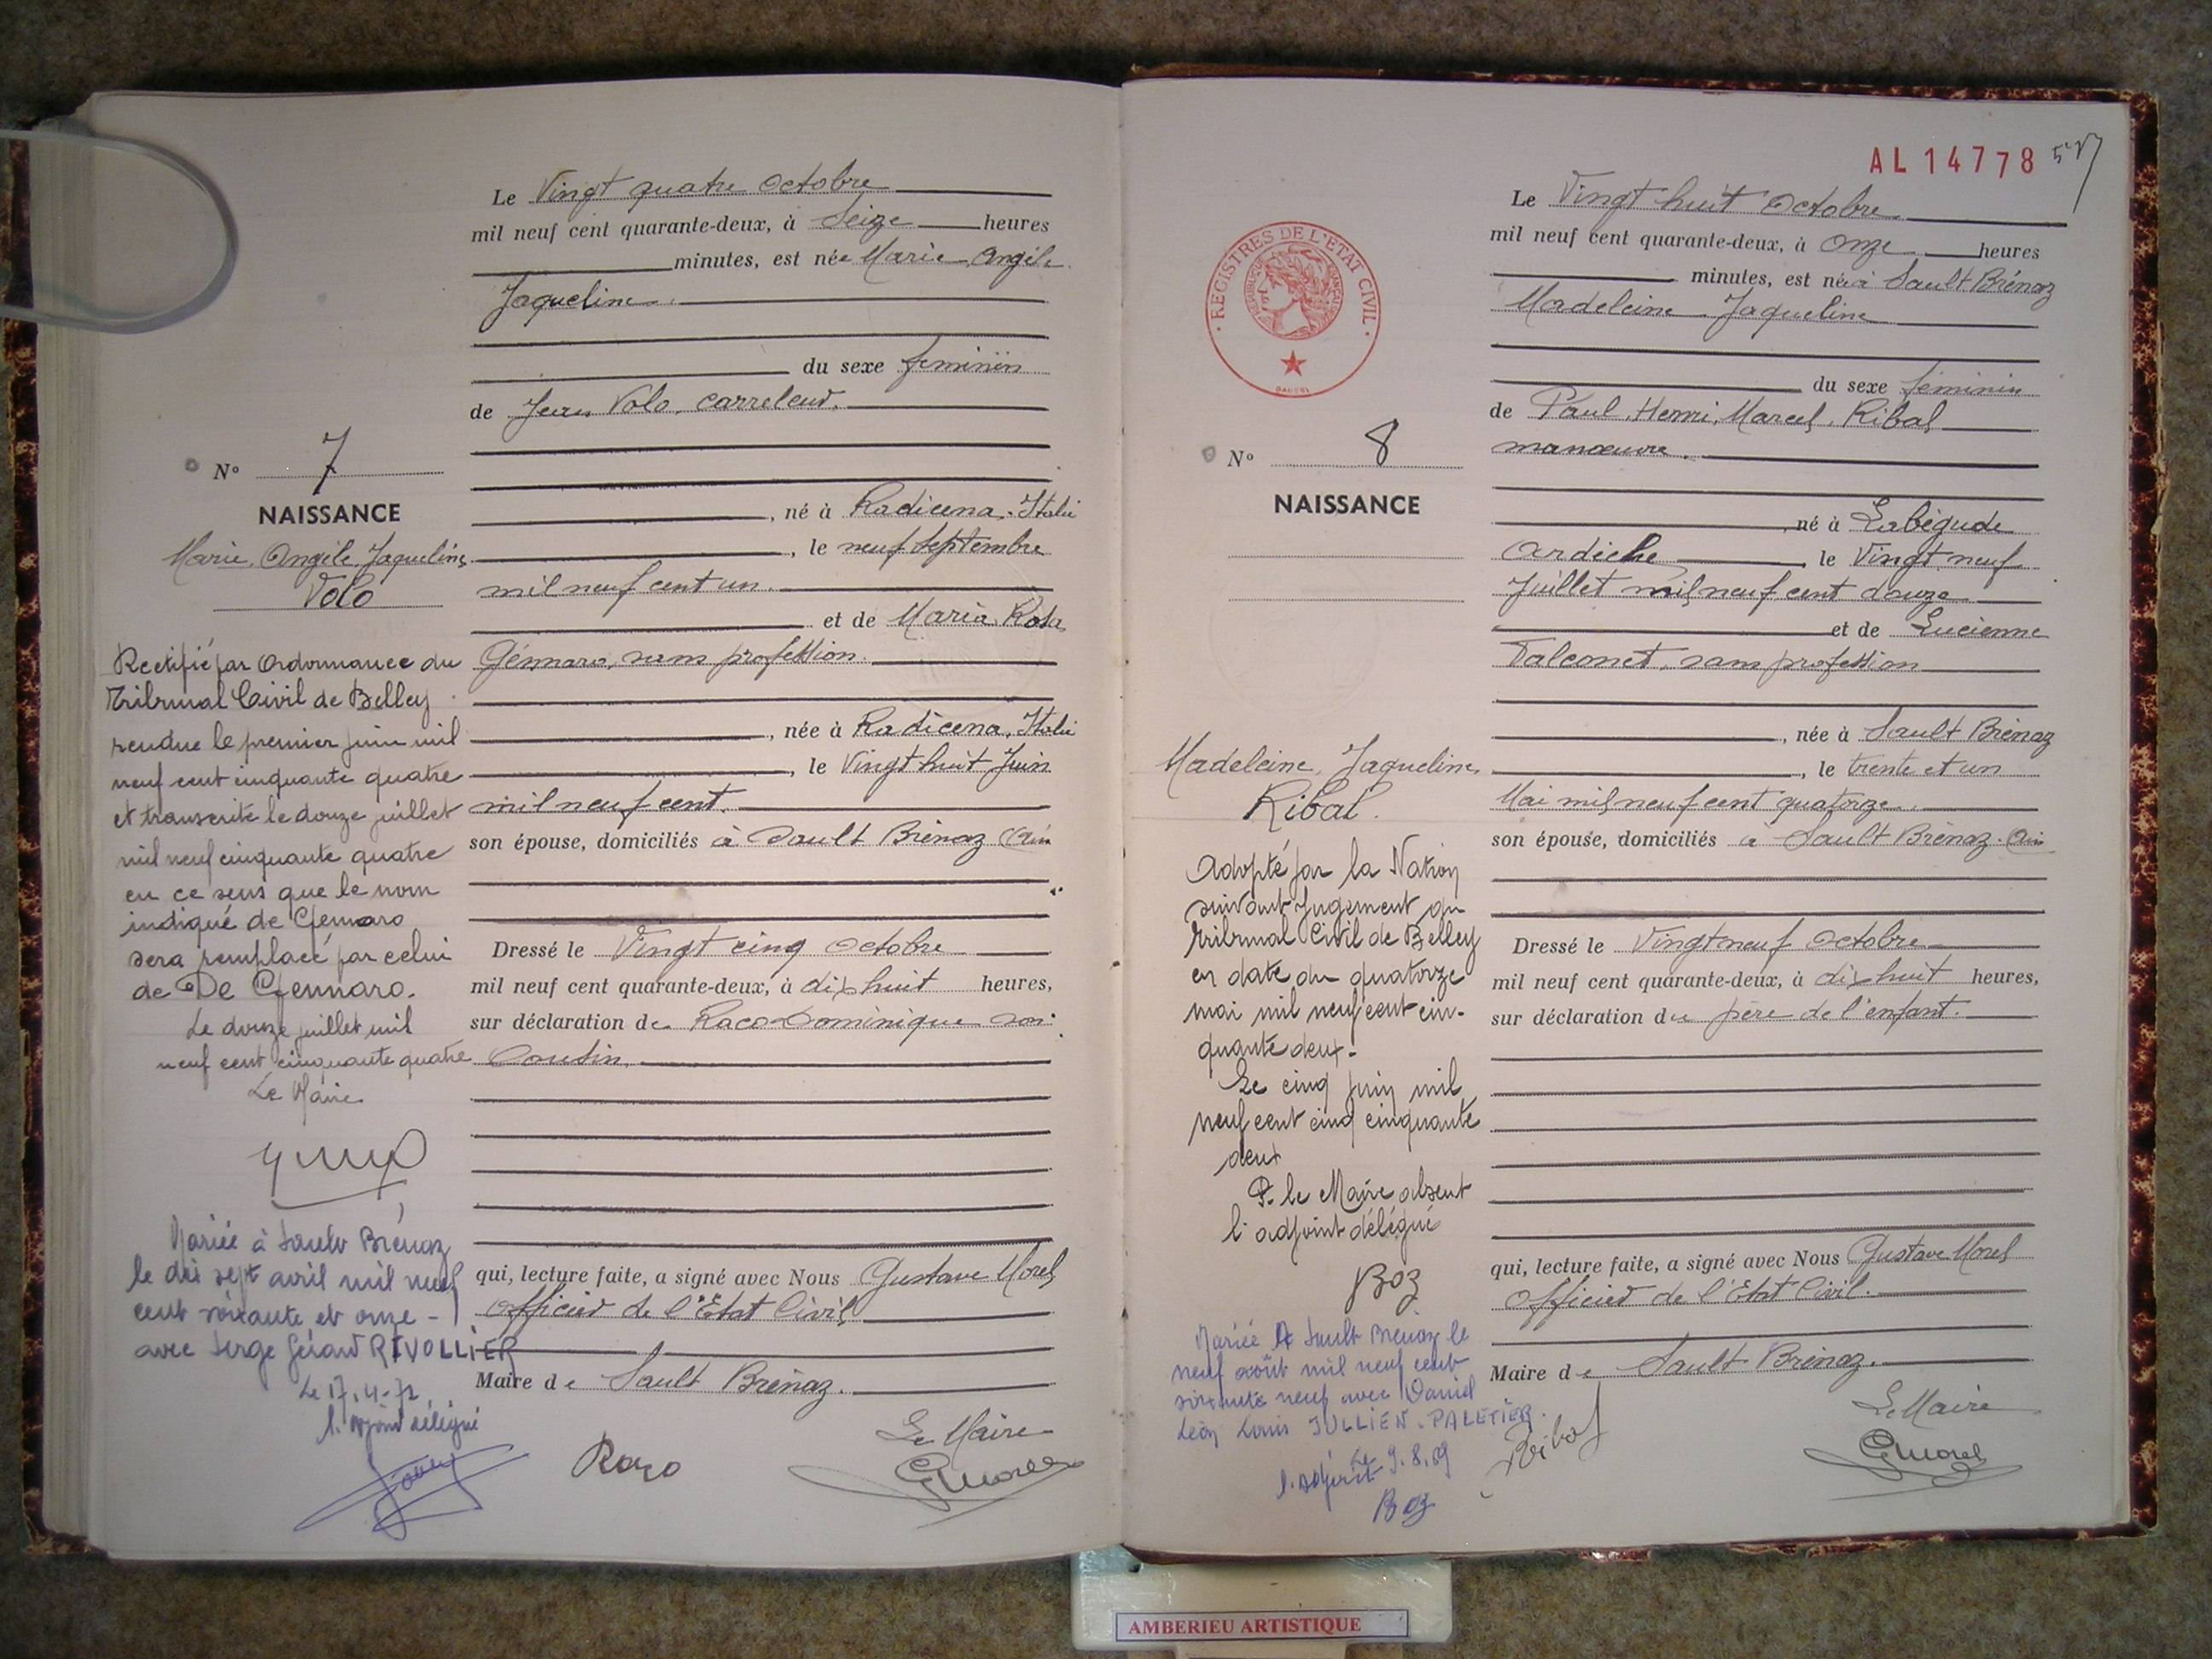 Le Vingt quatre Octobre
mil neuf cent quarante-deux, à Seize heures
minutes, est née Marie, Angèle
Jaqueline.
du sexe feminin
de Jean Volo, carreleur.
N° 7
NAISSANCE
Marie, Angèle, Jaqueline
Volo
, né à Radicena, Italie
, le neuf Septembre
mil neuf cent un.
et de Maria, Rosa
Gennaro, sans profession.
, née à Radicena, Italie
, le Vingt huit Juin
mil neuf cent.
son épouse, domiciliés à Sault Brénaz (Ain
Dressé le Vingt cinq Octobre
mil neuf cent quarante-deux, à dix huit heures,
sur déclaration de Raco Dominique son
Cousin.
qui, lecture faite, a signé avec Nous Gustave Morel
Officier de l'Etat Civil
Maire de Sault Brénaz.
Le Maire
Raco
GMorel
Rectifié par Ordonnance du
Tribunal Civil de Belley
rendue le premier juin mil
neuf cent cinquante quatre
et transcrite le douze juillet
mil neuf cinquante quatre
en ce sens que le nom
indiqué de Gennaro
sera remplacé par celui
de De Gennaro.
Le douze juillet mil
neuf cent cinquante quatre
Le Maire
Mariée à Sault Brénaz
le dix sept avril mil neuf
cent soixante et onze -
avec Serge Gérard RIVOLLIER
Le 17.4.72
l'adjoint délégué
AL 14778
Le Vingt huit Octobre
mil neuf cent quarante-deux, à onze heures
minutes, est née à Sault Brénaz
Madeleine Jaqueline
du sexe féminin
de Paul, Henri, Marcel, Ribal
manœuvre.
REGISTRES DE L'ETAT CIVIL
N° 8
NAISSANCE
né à Labégude
Ardèche le Vingt neuf
Juillet mil neuf cent douze
et de Lucienne
Falconet, sans profession
, née à Sault Brénaz
, le trente et un
Mai mil neuf cent quatorze.
son épouse, domiciliés à Sault Brénaz. Ain
Dressé le Vingt neuf Octobre
mil neuf cent quarante-deux, à dix huit heures,
sur déclaration du père de l'enfant.
qui, lecture faite, a signé avec Nous Gustave Morel
Officier de l'Etat Civil.
Maire de Sault Brénaz.
Le Maire
Ribal
GMorel
Madeleine, Jaqueline,
Ribal.
Adopté par la Nation
suivant Jugement du
Tribunal Civil de Belley
en date du quatorze
mai mil neuf cent cin-
quante deux.
Le cinq juin mil
neuf cent cinq cinquante
deux
P. le Maire absent
l'adjoint délégué
Boz
Mariée à Sault Brénaz le
neuf août mil neuf cent
soixante neuf avec Daniel
Léon Louis JULLIEN-PALETIER.
Le 9.8.69
l'adjoint
Boz
AMBERIEU ARTISTIQUE